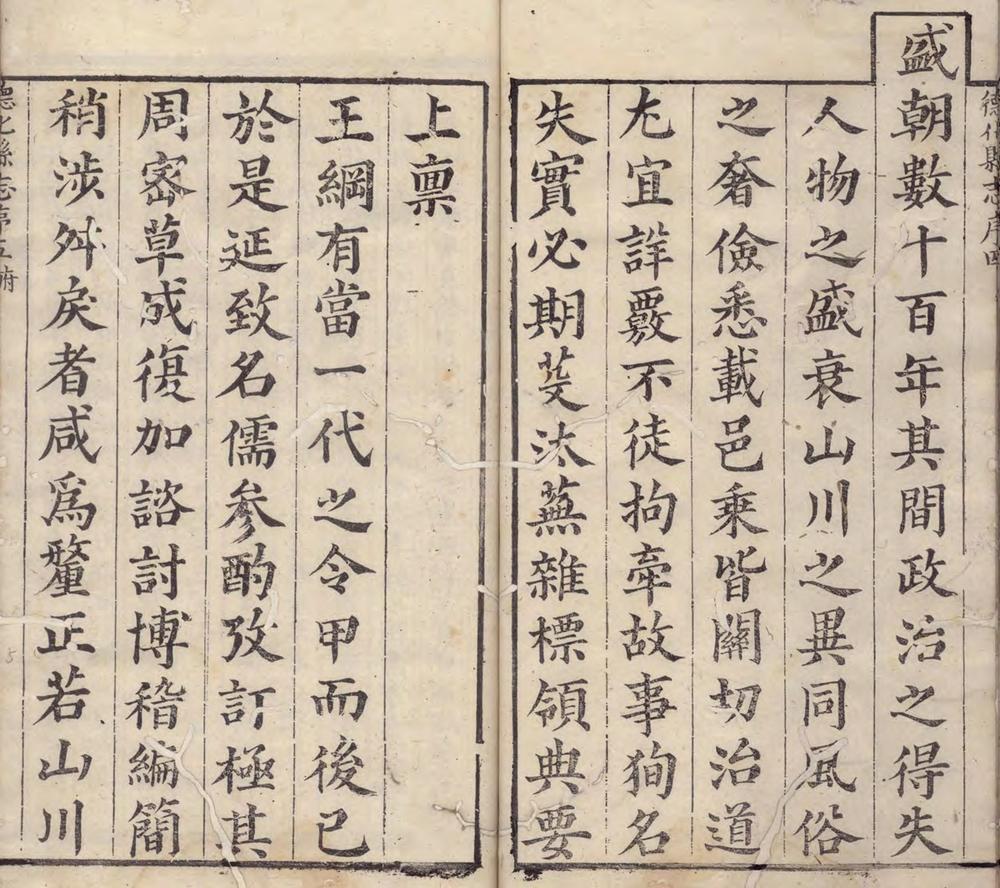 德化縣志序四
盛朝數十百年其間政治之得失
人物之盛衰山川之異同風俗
之奢儉悉載邑乘皆關切治道
尤宜詳覈不徒拘牽故事狥名
失實必期芟汰蕪雜標領典要
上稟
王綱有當一代之令甲而後已
於是延致名儒參酌攷訂極其
周宻草成復加諮討博稽編簡
稍涉舛戾者咸爲釐正若山川
德化縣志序五